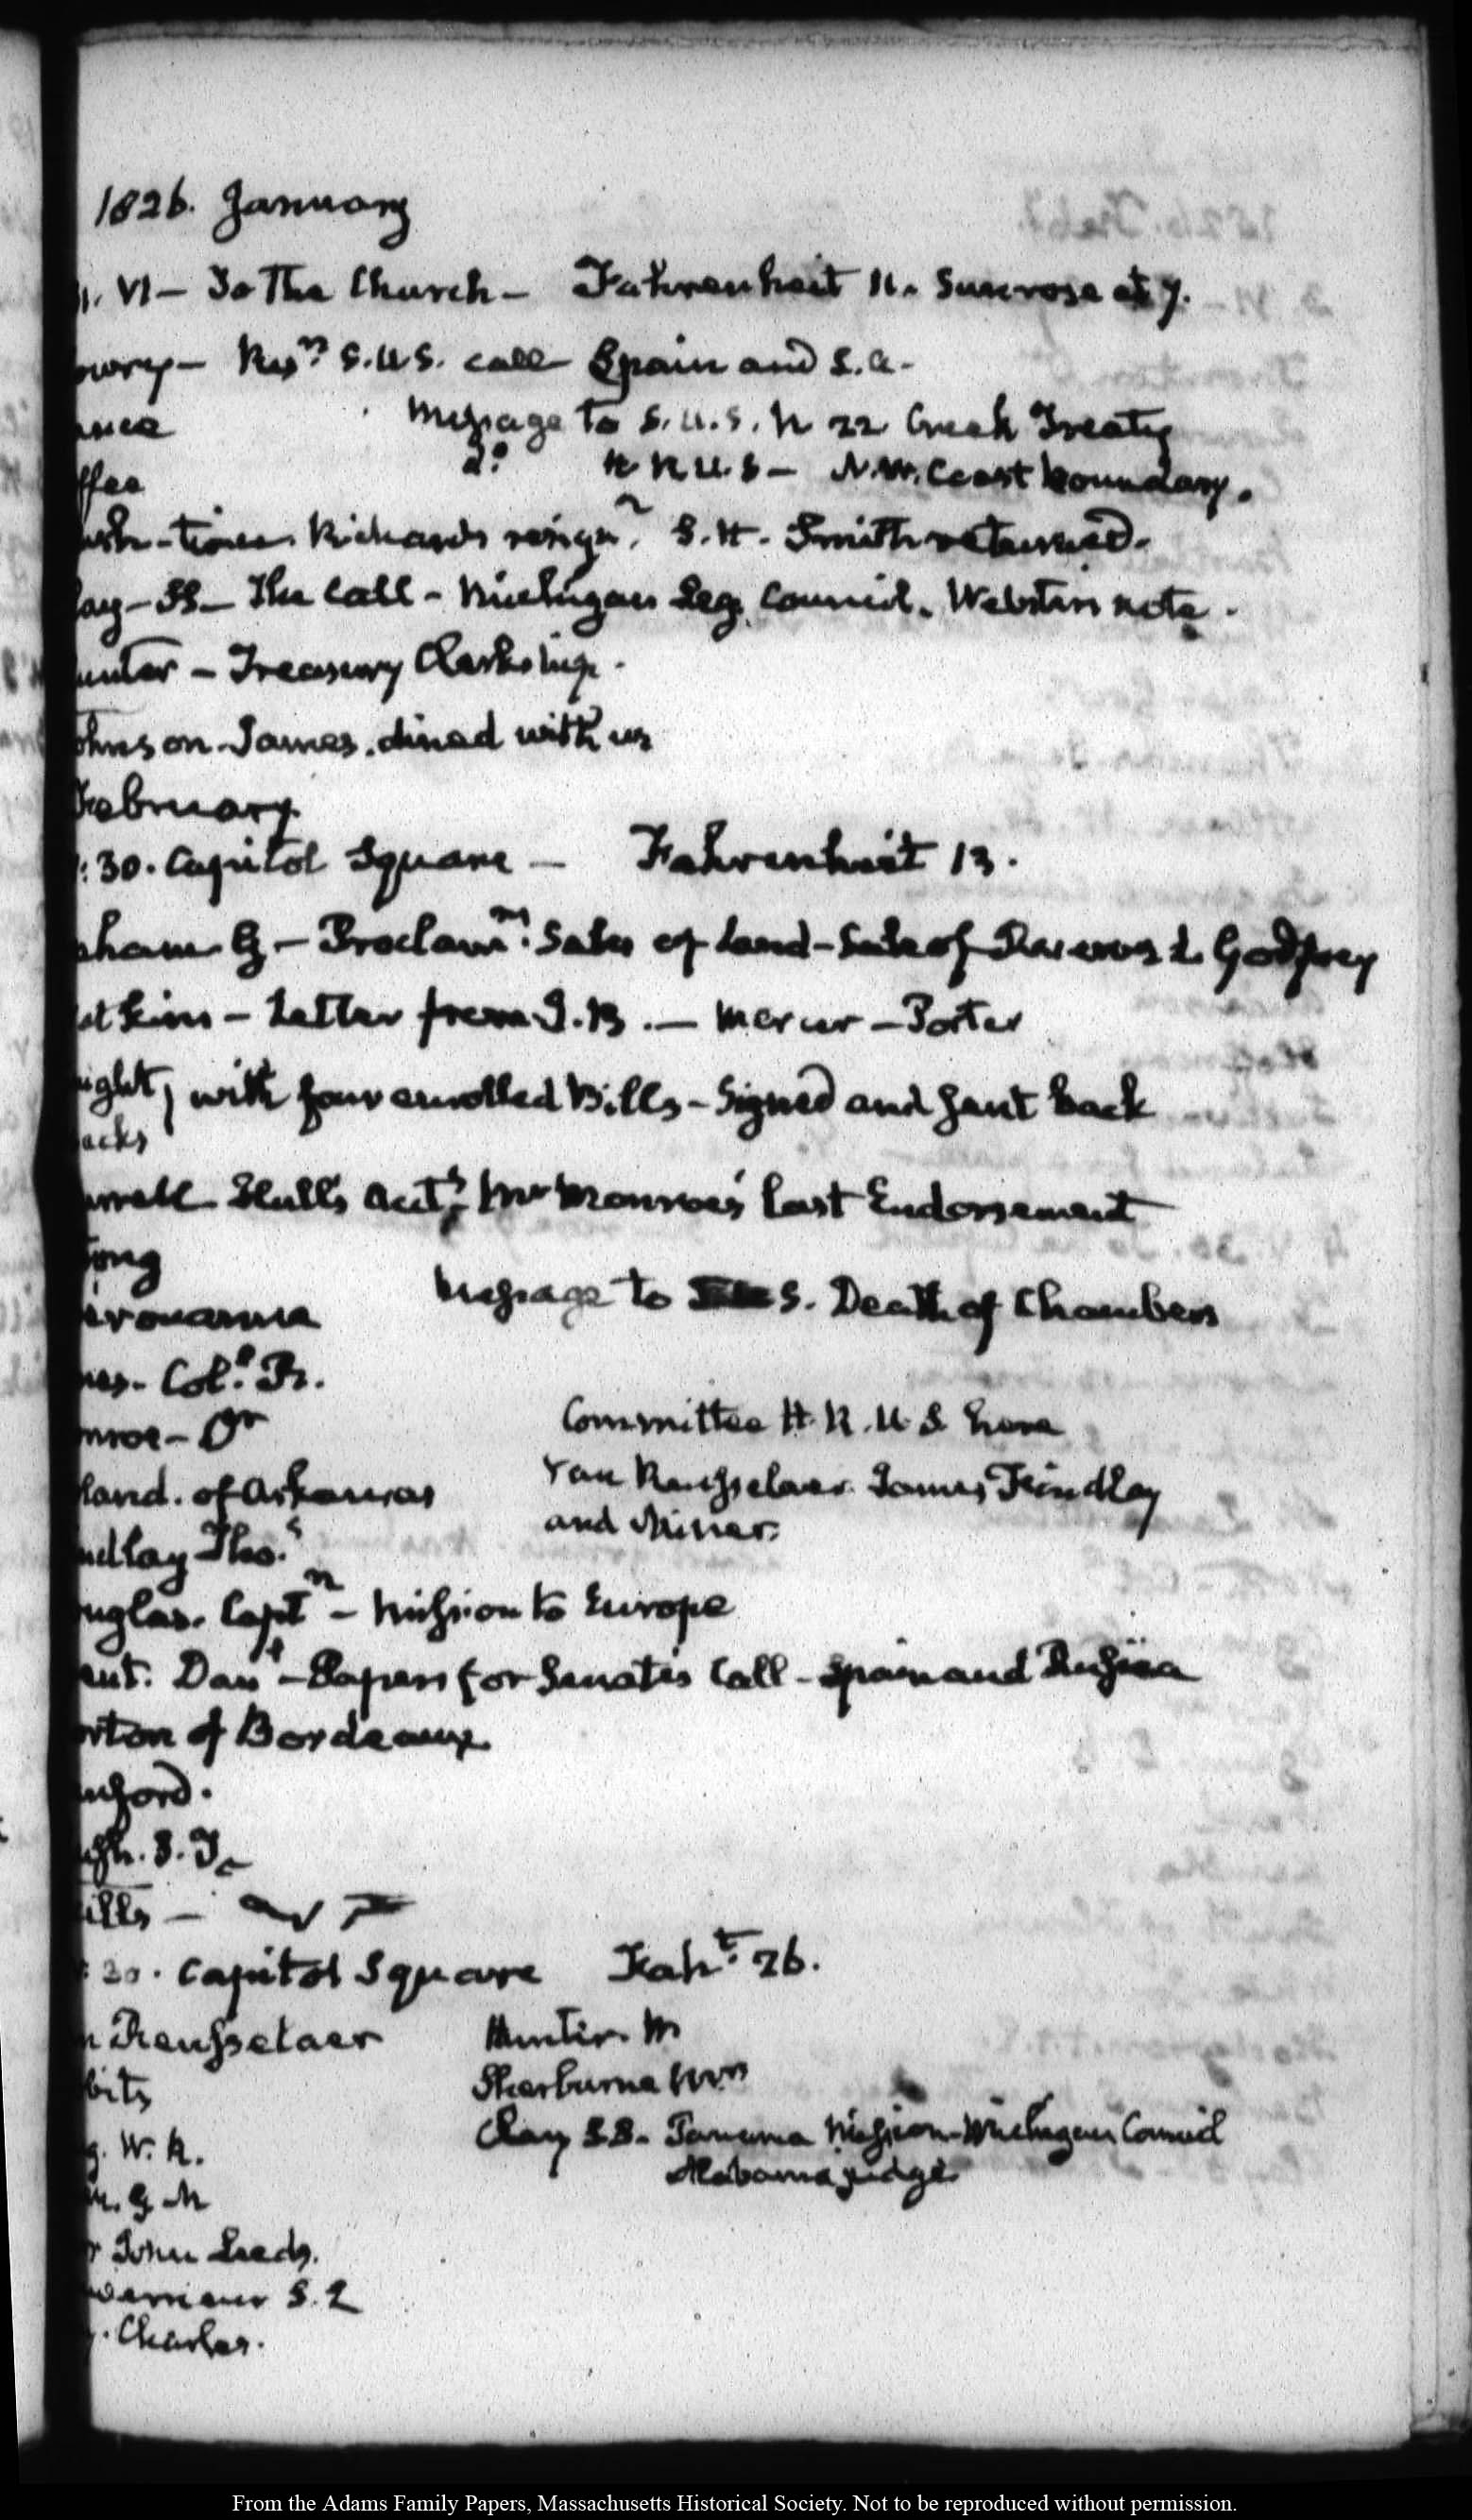 1826. January
VI – To the Church – Fahrenheit 11. Sun rose at 7.
owry – Resn S.U.S. call Spain and S.A.
Message to S.U.S. N 22 Creek Treaty
do H R U.S – N.W. Coast boundary.
ffee
Richards resign.n S.H. Smith returned.
lay – SS – The Call – Michigan Leg. Council. Webster's note.
unter – Treasury Clerkship.
ohnson James. dined with us
February
:30. Capitol Square – Fahrenheit 13.
aham G – Proclamn. Sales of Land – Sale of Godfrey
atkins – Letter from J.B. – Mercer – Porter
ight, with four enrolled Bills – Signed and sent back
acks
Hull's Acts. Mr Monroe's last Endorsement
ong
Message to S. Death of Chambers
nes – Col. R.
nroe – Dr
Committee H.R.U.S here
land. of Arkansas
Van Rensselaer. James Findlay
and Miner.
ndlay Thos.
uglas. Captn – Mission to Europe
ent. Danl – Papers for Senate's Call – Spain and Russia
orton of Bordeaux
nford.
ills –
30. Capitol Square Faht. 26.
n Rensselaer
Hunter. W
bits
Sherburne
g. W. R.
Clay S.S. Panama Mission – Michigan Council
Alabama judge
John Leeds.
verneur S. L
. Charles.
From the Adams Family Papers, Massachusetts Historical Society. Not to be reproduced without permission.